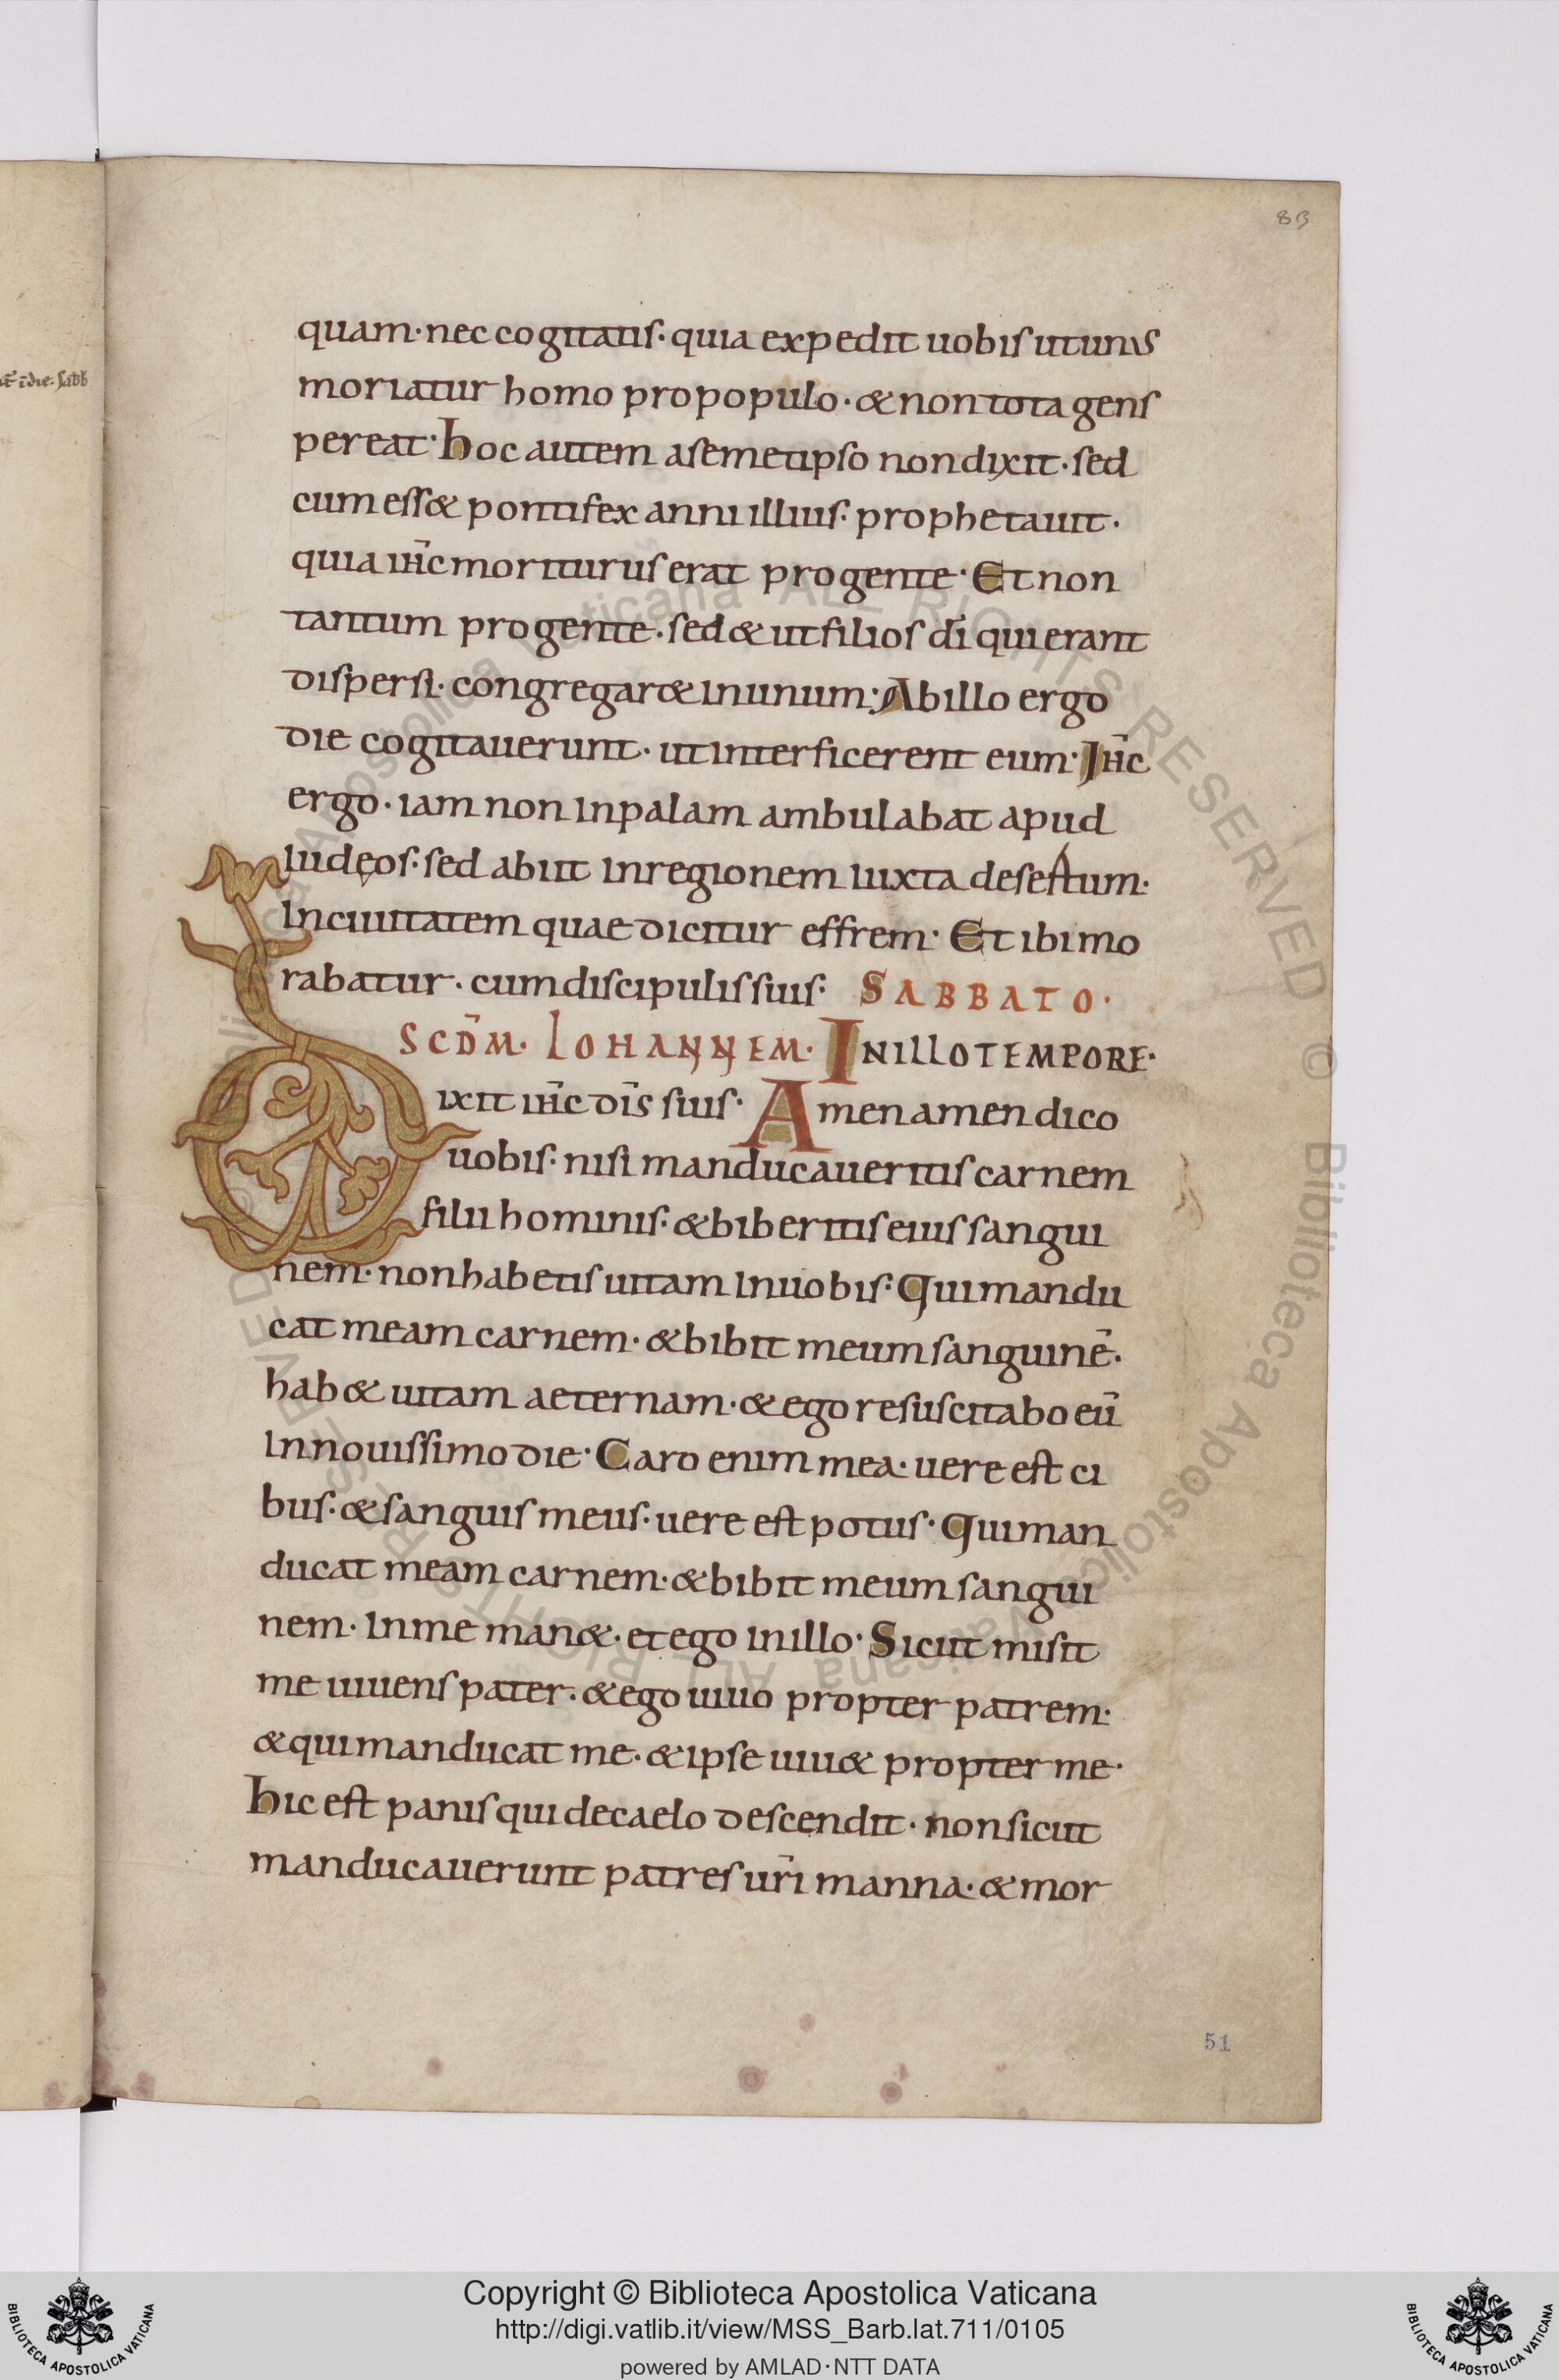 83
quam· nec cogitatis· quia expedit uobis ut unus
moriatur homo pro populo· & non tota gens
pereat· hoc autem a semetipso non dixit· sed
cum ess& pontifex anni illius· prophetauit·
quia ih̅c moriturus erat pro gente· Et non
tantum pro gente· sed & ut filios di̅ qui erant
dispersi· congregar& in unum· Ab illo ergo
die cogitauerunt· ut interficerent eum· Ih̅c
ergo· iam non in palam ambulabat apud
iudęos· sed abiit in regionem iuxta desertum·
In ciuitatem quae dicitur effrem· Et ibi mo
rabatur· cum discipulis suis· SABBATO·
SCD̅M· IOHANNEM· IN ILLO TEMPORE·
Dixit ih̅c dis̅ suis· Amen amen dico
uobis· nisi manducaueritis carnem
filii hominis· & biberitis eius sangui
nem· non habetis uitam in uobis· Qui mandu
cat meam carnem· & bibit meum sanguine̅·
hab& uitam aeternam· & ego resuscitabo eu̅
In nouissimo die· Caro enim mea· uere est ci
bus· & sanguis meus· uere est potus· Qui man
ducat meam carnem· & bibit meum sangui
nem· In me man&· et ego in illo· Sicut misit
me uiuens pater· & ego uiuo propter patrem·
& qui manducat me· & ipse uiu& propter me·
hic est panis qui de caelo descendit· non sicut
manducauerunt patres ur̅i manna· & mor
51
Copyright © Biblioteca Apostolica Vaticana
http://digi.vatlib.it/view/MSS_Barb.lat.711/0105
powered by AMLAD·NTT DATA
BIBLIOTECA APOSTOLICA VATICANA
BIBLIOTECA APOSTOLICA VATICANA